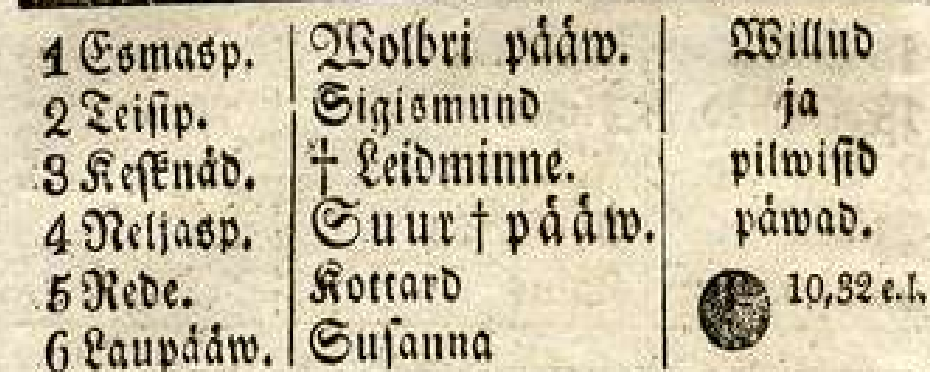 1 Esmasp. Wolbri pääw. Willud
2 Teisip. Sigismund ja
3 Kesknäd. † Leidminne. pilwisid
4 Neljasp. Suur † pääw. päwad.
5 Rede. Kottard 10,32 e.l.
6 Laupääw. Susanna